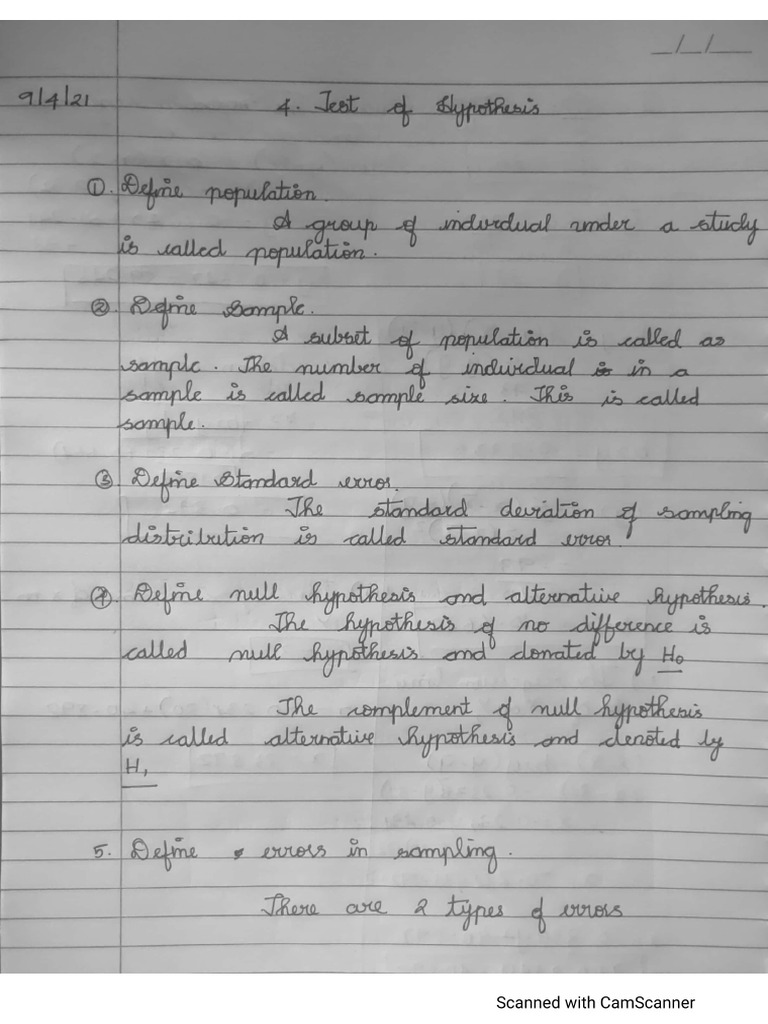 _/_/___
9/4/21
4. Test of Hypothesis
①. Define population.
A group of individual under a study
is called population.
②. Define Sample.
A subset of population is called as
sample. The number of individual is in a
sample is called sample size. This is called
sample.
③. Define Standard error.
The standard deviation of sampling
distribution is called standard error.
④. Define null hypothesis and alternative hypothesis.
The hypothesis of no difference is
called null hypothesis and donated by H0
The complement of null hypothesis
is called alternative hypothesis and denoted by
H1
5. Define errors in sampling.
There are 2 types of errors
Scanned with CamScanner